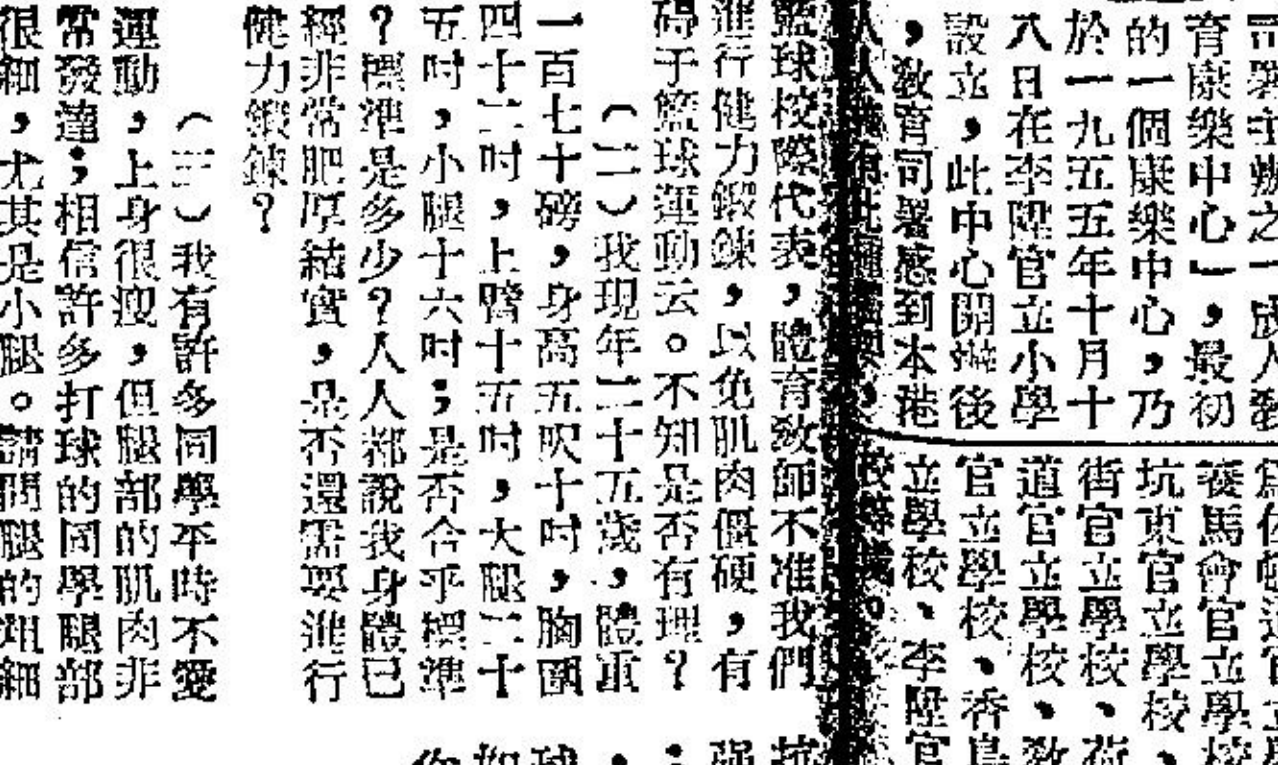 育康樂中心」，最初
的一個康樂中心，乃
於一九五五年十月十
八日在李陞官立小學
設立，此中心開辦後
，教育司署感到本港
養馬會官立學校
坑東官立學校、
街官立學校、荷
道官立學校、敎
官立學校、香島
立學校、李陞官
籃球校際代表，體育敎師不准我們
進行健力鍛鍊，以免肌肉僵硬，有
碍于籃球運動云。不知是否有理？
（二）我現年二十五歲，體重
一百七十磅，身高五呎十吋，胸圍
四十二吋，上臂十五吋，大腿二十
五吋，小腿十六吋；是否合乎標準
？標準是多少？人人都說我身體已
經非常肥厚結實，是否還需要進行
健力鍛鍊？
（三）我有許多同學平時不愛
運動，上身很瘦，但腿部的肌肉非
常發達；相信許多打球的同學腿部
很細，尤其是小腿。請問腿的粗細